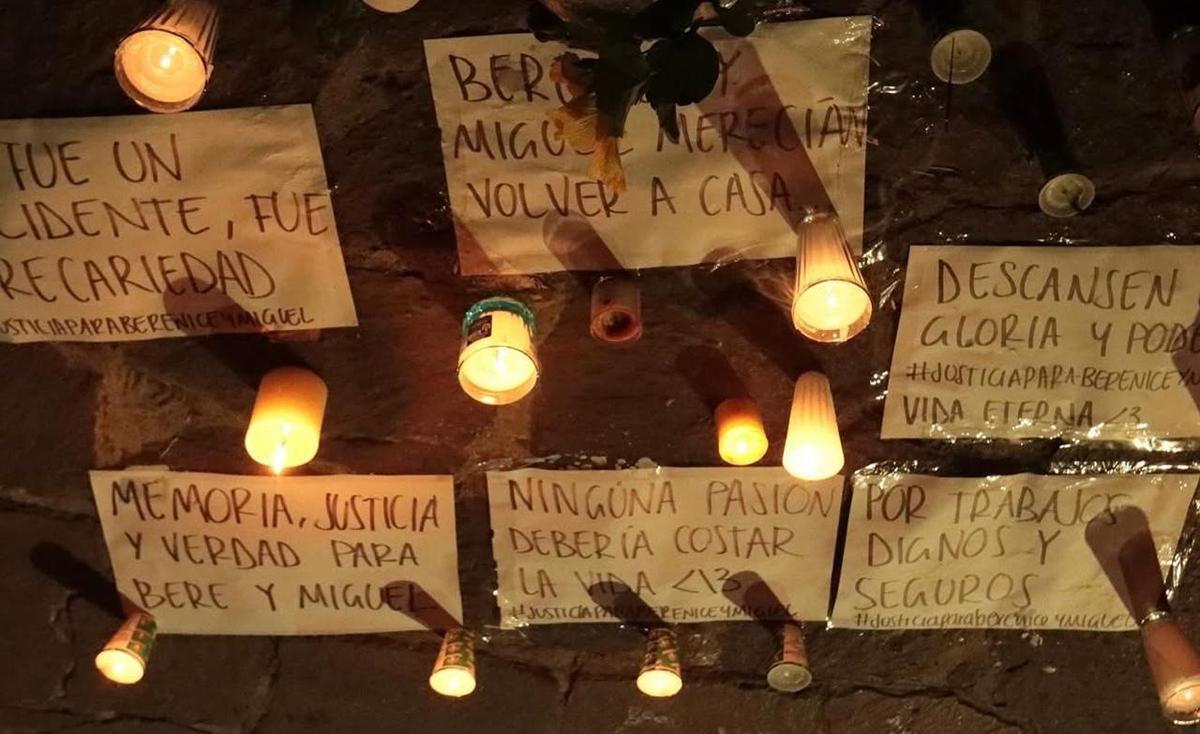 FUE UN
CIDENTE, FUE
RECARIEDAD
USTICIAPARABERENICEYMIGUEL
BERE Y
MIGUEL MERECIÁN
VOLVER A CASA...
DESCANSEN
GLORIA Y PODE
#JUSTICIAPARABERENICEYM
VIDA ETERNA <3
MEMORIA, JUSTICIA
Y VERDAD PARA
BERE Y MIGUEL
NINGÚNA PASIÓN
DEBERÍA COSTAR
LA VIDA <\3
#JUSTICIAPARABERENICEYMIGUEL
POR TRABAJOS
DIGNOS Y
SEGUROS
#JusticiaparabereniceYMIGUEL